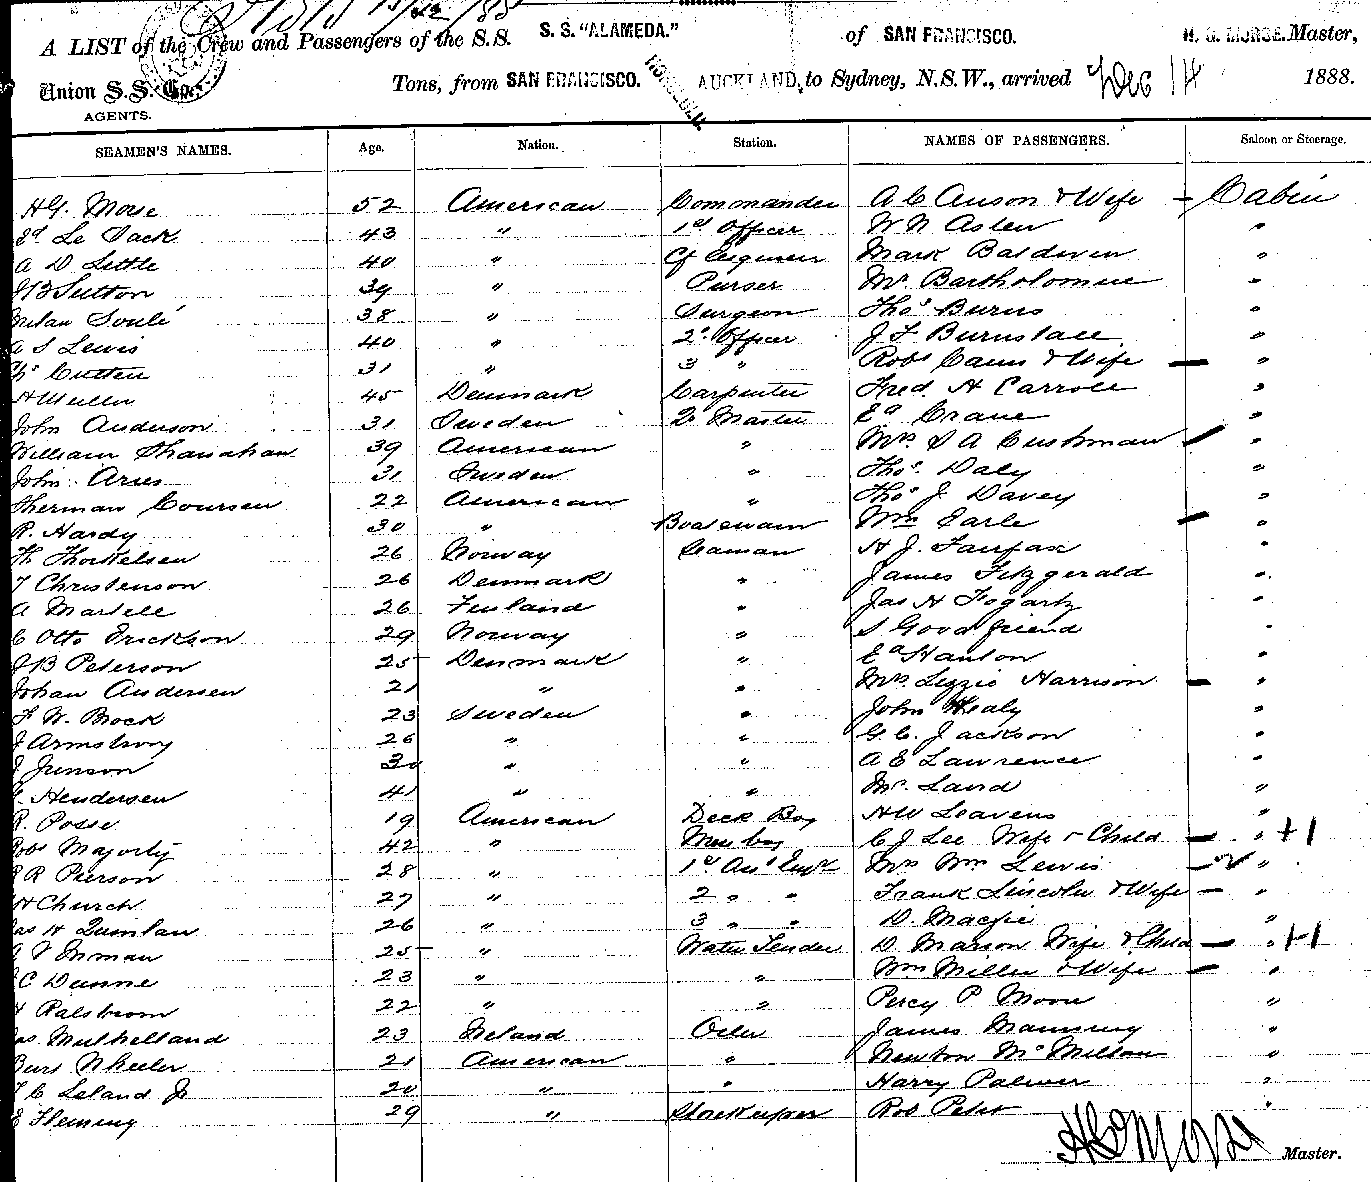 A LIST of the Crew and Passengers of the S.S. S. S. "ALAMEDA." of SAN FRANCISCO. H. G. MORSE. Master,
Union S. S. Co. Tons, from SAN FRANCISCO. HONOLULU. AUCKLAND, to Sydney, N.S.W., arrived Dec 14 1888.
AGENTS.
SEAMEN'S NAMES. Age. Nation. Station. NAMES OF PASSENGERS. Saloon or Steerage.
H G. Morse 52 American Commander A C Anson & Wife - Cabin
43 " 1st Officer W N Aslen "
A D Little 40 " Cf Engineer Mark Baldwin "
J B Sutton 39 " Purser Mr Bartholomew "
Milan Soulé 38 " Surgeon Thos Burns "
A S Lewis 40 " 2d Officer J F Burnstall "
Cutten 31 " 3 " Robt Cann & Wife - "
H Muller 45 Denmark Carpenter Fred. H Carroll "
John Anderson 31 Sweden Qr Master Ed Crane "
William Shanahan 39 American " Mrs S A Cushman - "
John Aries 31 Sweden " Thos. Daly "
Sherman Coursen 22 American " Thos J Davey "
R. Hardy 30 " Boatswain Wm Earle - "
H Thorkelsen 26 Norway Seaman H J. Fairfax "
T Christenson 26 Denmark " James Fitzgerald "
A Martell 26 Finland " Jas H Fogarty "
C Otto Erickson 29 Norway " S Goodfriend "
J B Peterson 25 Denmark " Ed Hanlon "
Johan Andersen 21 " " Mrs Lizzie Harrison - "
F W. Bock 23 Sweden " John Healy "
J Armstrong 26 " " G. C. Jackson "
J Jenson 30 " " A E Lawrence "
Hendersen 41 " " Mr. Laird "
R. Posse 19 American Deck Boy H W Leavens "
Robt Majorty 42 " Mess boy C J Lee Wife & Child - " +1
R Pierson 28 " 1st Asst Engr Mrs Wm Lewis - "
H Church 27 " 2 " " Frank Lincoln & Wife - "
Jas H Quinlan 26 " 3 " " D. Macfie "
Inman 25 " Water Tender D. Marion Wife & Child - " +1
C Dunne 23 " " Wm Miller & Wife - "
H Ralstrom 22 " " Percy P Moore "
Jas Mulhelland 23 Ireland Oiler James Manning "
Burt Wheeler 21 American " Newton McMillan "
C Leland Jr 20 " " Harry Palmer "
E Fleming 29 " Storekeeper Rob Petit "
H G Morse Master.